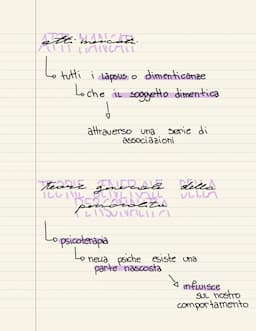 ATTI MANCATI
atti mancati
tutti i lapsus o dimenticanze
che il soggetto dimentica
attraverso una serie di
associazioni
TEORIE GENERALE DELLA
Teorie generale della
PERSONALITÀ
personalità
psicoterapia
nella psiche esiste una
parte nascosta
influisce
sul nostro
comportamento